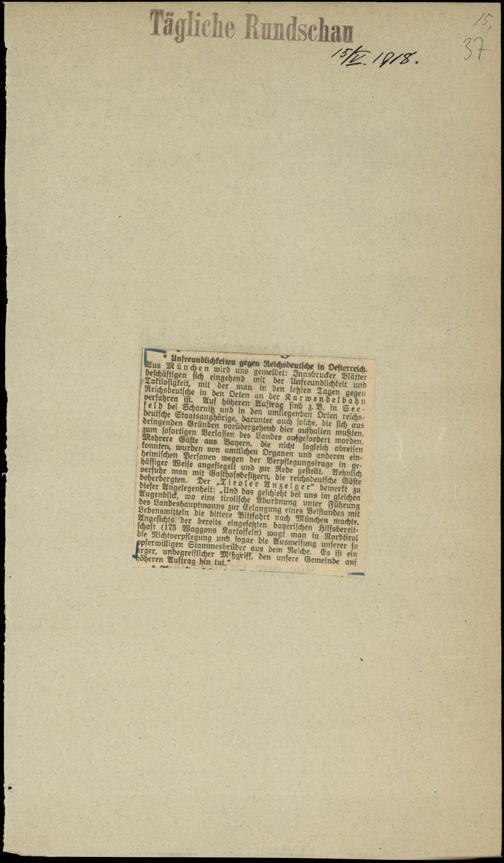 Tägliche Rundschau
15/V. 1918.
15.
37
Unfreundlichkeiten gegen Reichsdeutsche in Oesterreich.
Aus München wird uns gemeldet: Innsbrucker Blätter
beschäftigen sich eingehend mit der Unfreundlichkeit und
Taktlosigkeit, mit der man in den letzten Tagen gegen
Reichsdeutsche in den Orten an der Karwendelbahn
verfahren ist. Auf höheren Auftrag sind z. B. in See-
feld bei Scharnitz und in den umliegenden Orten reichs-
deutsche Staatsangehörige, darunter auch solche, die sich aus
dringenden Gründen vorübergehend hier aufhalten mußten,
zum sofortigen Verlassen des Landes aufgefordert worden.
Mehrere Gäste aus Bayern, die nicht sogleich abreisen
konnten, wurden von amtlichen Organen und anderen ein-
heimischen Personen wegen der Verpflegungsfrage in ge-
hässiger Weise angeflegelt und zur Rede gestellt. Aehnlich
verfuhr man mit Gasthofbesitzern, die reichsdeutsche Gäste
beherbergten. Der „Tiroler Anzeiger" bemerkt zu
dieser Angelegenheit: „Und das geschieht bei uns im gleichen
Augenblick, wo eine tirolische Abordnung unter Führung
des Landeshauptmanns zur Erlangung eines Beistandes mit
Lebensmitteln die bittere Bittfahrt nach München machte.
Angesichts der bereits eingesetzten bayerischen Hilfsbereit-
schaft (175 Waggons Kartoffeln) wagt man in Nordtirol
die Nichtverpflegung und sogar die Ausweisung unserer so
opferwilligen Stammesbrüder aus dem Reiche. Es ist ein
arger, unbegreiflicher Mißgriff, den unsere Gemeinde auf
höheren Auftrag hin tut."